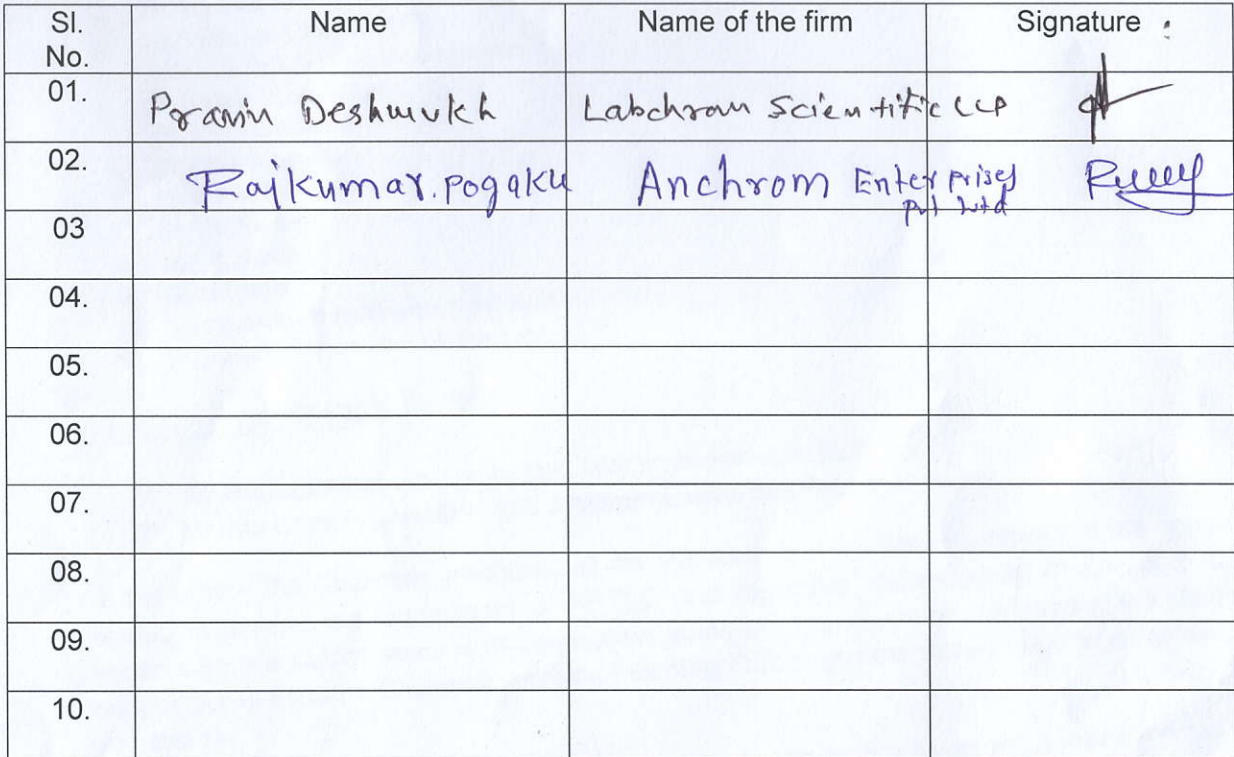 Sl. No. Name Name of the firm Signature :
01. Pravin Deshmukh Labchrom Scientific LLP
02. Rajkumar.pogaku Anchrom Enterprises
Pvt Ltd
03
04.
05.
06.
07.
08.
09.
10.